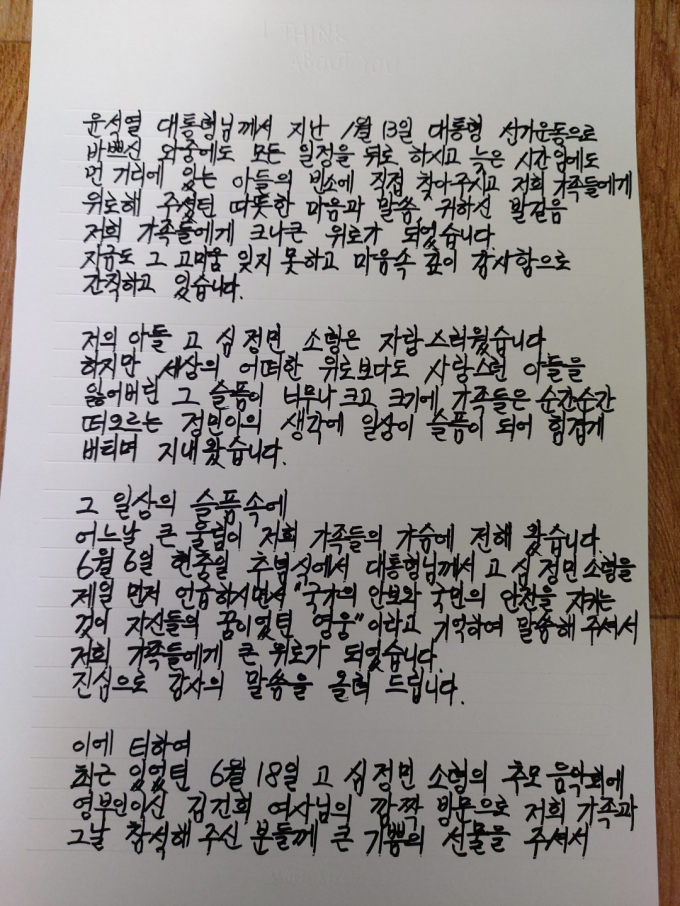 윤석열 대통령님께서 지난 1월 13일 대통령 선거운동으로
바쁘신 와중에도 모든 일정을 뒤로 하시고 늦은 시간임에도
먼 거리에 있는 아들의 빈소에 직접 찾아주시고 저희 가족들에게
위로해 주셨던 따뜻한 마음과 말씀, 귀하신 발걸음
저희 가족들에게 크나큰 위로가 되었습니다.
지금도 그 고마움 잊지 못하고 마음속 깊이 감사함으로
간직하고 있습니다.
저의 아들 고 심정민 소령은 자랑스러웠습니다
하지만 세상의 어떠한 위로보다도 사랑스런 아들을
잃어버린 그 슬픔이 너무나 크고 크기에 가족들은 순간순간
떠오르는 정민이의 생각에 일상이 슬픔이 되어 힘겹게
버티며 지내왔습니다.
그 일상의 슬픔속에
어느날 큰 울림이 저희 가족들의 가슴에 전해 왔습니다.
6월 6일 현충일 추념식에서 대통령님께서 고 심정민소령을
제일 먼저 언급하시면서 "국가의 안보와 국민의 안전을 지키는
것이 자신들의 꿈이었던 영웅"이라고 기억하여 말씀해 주셔서
저희 가족들에게 큰 위로가 되었습니다.
진심으로 감사의 말씀을 올려 드립니다.
이에 더하여
최근 있었던 6월 18일 고 심정민 소령의 추모 음악회에
영부인이신 김건희 여사님의 깜짝 방문으로 저희 가족과
그날 참석해 주신 분들께 큰 기쁨의 선물을 주셔서